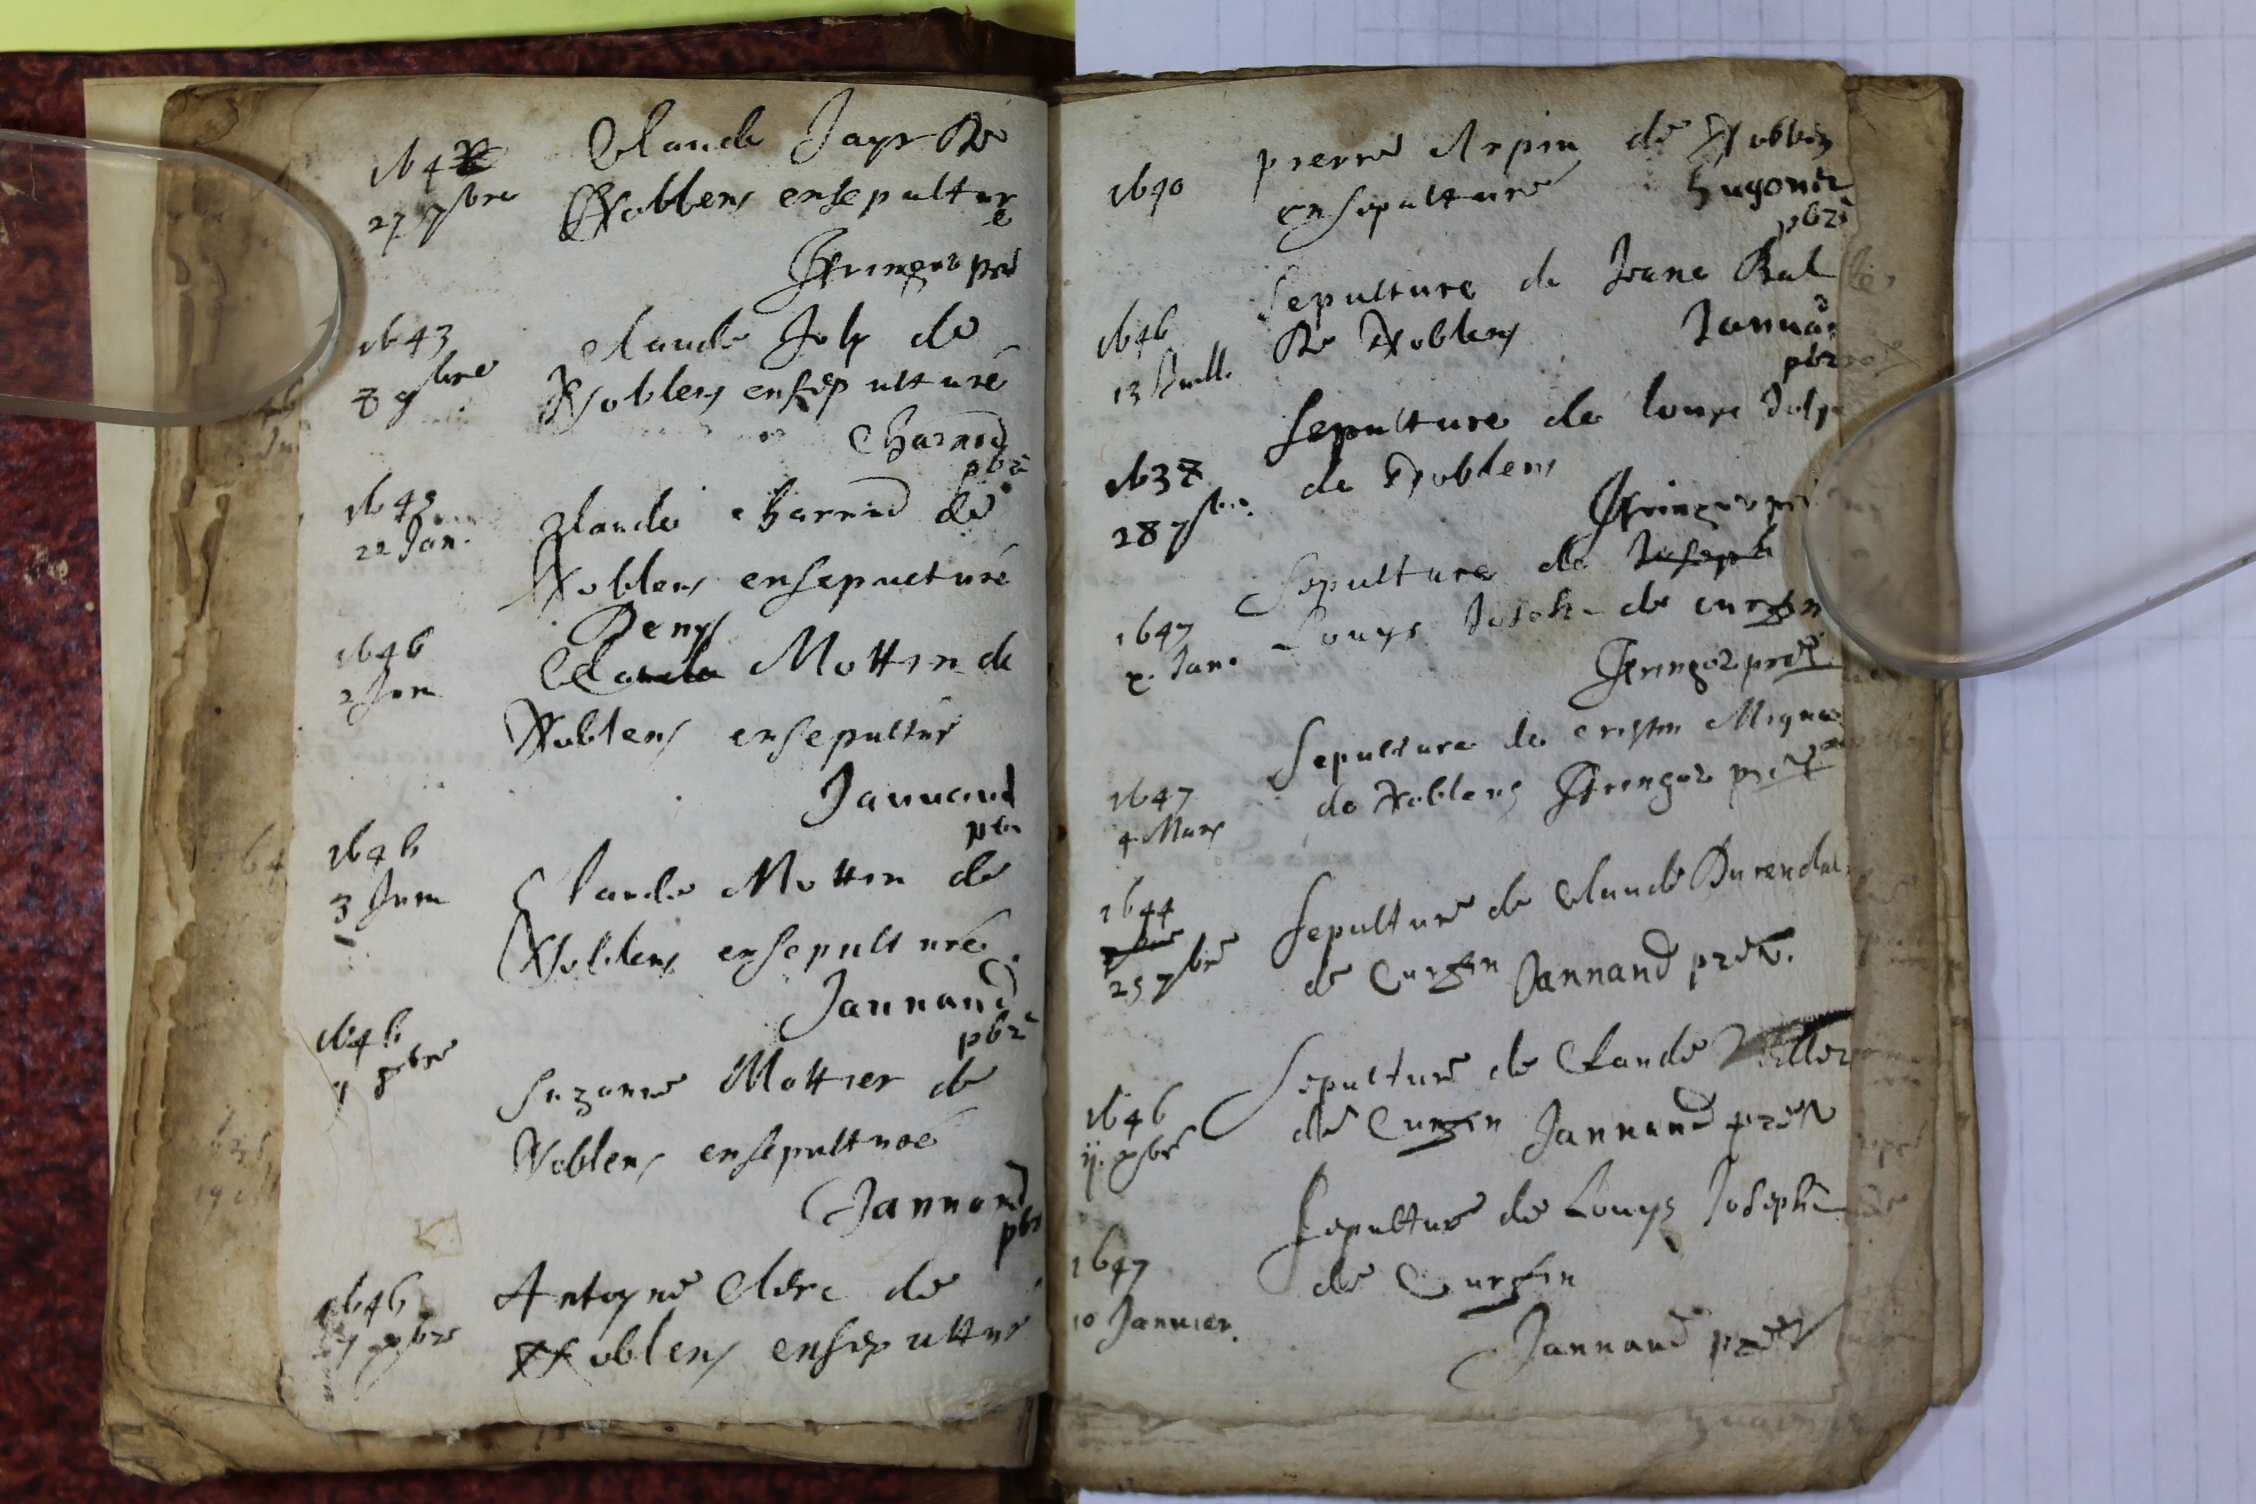 164
27 7bre
Claude Jayr De
Noblens ensepultur
e
Fringer pre
1643
8 9bre
Claude Joly de
Noblens ensepulturé
Charnod
pbr
1643
22 Jan.
Claude Charnod de
Noblens ensepulturé
1646
2 Juin
Denys
Claude Mottin de
Noblens ensepulturé
Jannand
pbr
1646
3 Juin
Claude Mottin de
Noblens ensepulturé
Jannand
pbr
1646
8bre
Suzanne Mottier de
Noblens ensepulturé
Jannand
pbr
1646
Antoyne Clerc de
Noblens ensepulturé
1640
pierre Arpin de Noblens
ensepulturé Hugonet
pbr
1646
13 Juill.
Sepulture de Jeane Bal
De Noblens Jannand
pbr
1638
28 7bre.
Sepulture de louyse Joly
de Noblens
Fringer pre
1647
x. Jan.
Sepulture de Joseph
Louys Joseph de curzin
Fringer pret
1647
4 Mars
Sepulture de cristin
de Noblens Fringer pret
1644
25 7bre
Sepulture de Claude Durendal
de Curzin Jannand pret.
1646
ij. xbre
Sepulture de Claude
de Curzin Jannand pret
1647
10 Januier.
Sepulture de Louys Joseph
de Curzin
Jannand pret